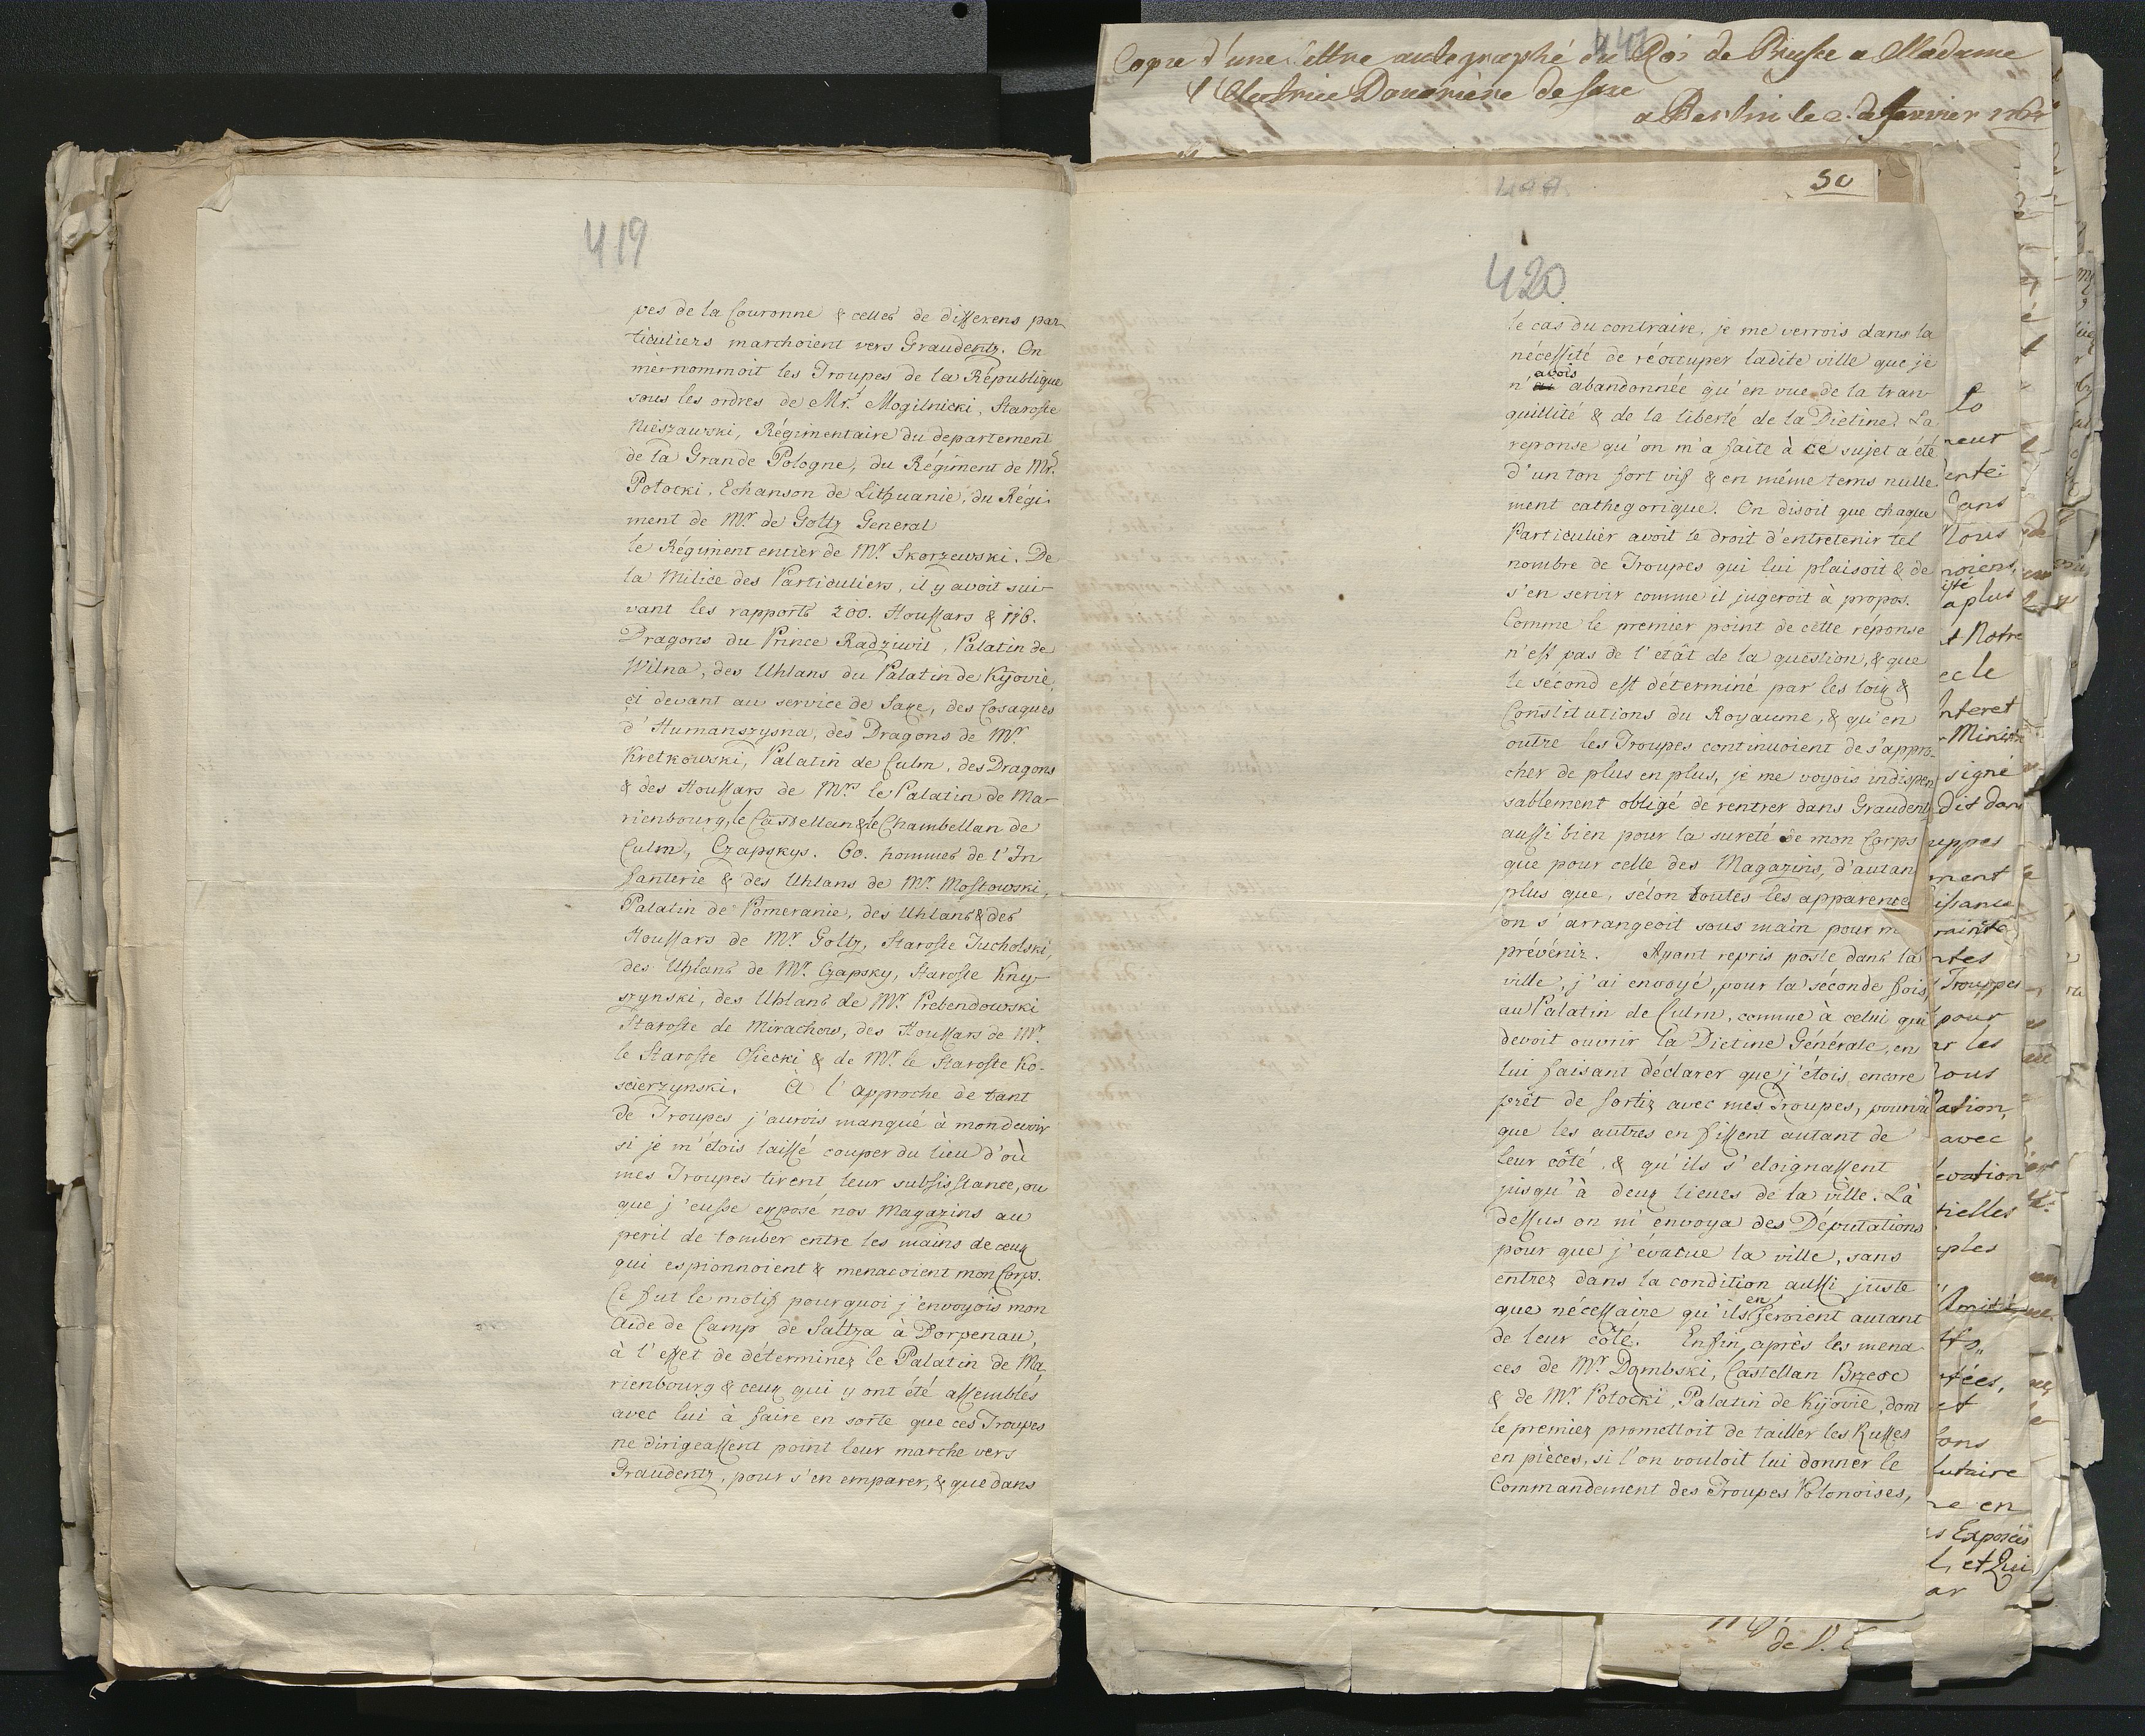 Copie d'une lettre autographé du Roi de Prusse a Madame
l'Electrice Douairière de Saxe
a Berlin le 2. de Janvier
419
pes de la Couronne & celles de differens par
ticuliers marchoient vers Graudentz. On
me nommoit les Troupes de la République
sous les ordres de Mr. Mogilnicki, Staroste
Nieszawski, Régimentaire du departement
de la Grande Pologne, du Régiment de Mr.
Potocki, Echanson de Lithuanie, du Régi-
ment de Mr. de Goltz General
le Régiment entier de Mr. Skorzewski. De
la Milice des Particuliers, il y avoit sui-
vant les rapports 200. Houssars & 116.
Dragons du Prince Radziwil, Palatin de
Wilna, des Uhlans du Palatin de Kijovie,
ci devant au service de Saxe, des Cosaques
d'Humanszysna, des Dragons de Mr.
Kretkowski, Palatin de Culm, des Dragons
& des Houssars de Mrs. le Palatin de Ma-
rienbourg, le Castellan & le Chambellan de
Culm, Czapskys. 60. hommes de l'In
fanterie & des Uhlans de Mr. Mostowski,
Palatin de Pomeranie, des Uhlans & des
Houssars de Mr. Goltz, Staroste Tucholski,
des Uhlans de Mr. Czapsky, Staroste Kny-
szynski, des Uhlans de Mr. Prebendowski
Staroste de Mirachow, des Houssars de Mr.
le Staroste Osiecki & de Mr. le Staroste Ko-
scierzynski. A l'approche de tant
de Troupes j'aurois manqué à mon devoir
si je m'étois laissé couper du lieu d'où
mes Troupes tirent leur subsisstance, ou
que j'eusse exposé nos Magazins au
peril de tomber entre les mains de ceux
qui espionnoient & menacoient mon Corps.
Ce fut le motif pourquoi j'envoyois mon
Aide de Camp de Saltza à Dorpenau,
à l'effet de déterminer le Palatin de Ma,
rienbourg & ceux qui y ont été assemblés
avec lui à faire en sorte que ces Troupes
ne dirigeassent point leur marche vers
Graudentz, pour s'en emparer, & que dans
50
420
le cas du contraire, je me verrois dans la
nécessité de réoccuper ladite ville que je
n'avois abandonnée qu'en vue de la tran-
quillité & de la liberté de la Diétine. La
reponse qu'on m'a faite à ce sujet a été
d'un ton fort vif & en même tems nulle
ment cathegorique. On disoit que chaque
Particulier avoit le droit d'entretenir tel
nombre de Troupes qui lui plaisoit & de
s'en servir comme il jugeroit à propos.
Comme le premier point de cette réponse
n'est pas de l'etât de la question, & que
le sécond est déterminé par les loix &
Constitutions du Royaume, & qu'en
outre les Troupes continuoient de s'appro-
cher de plus en plus, je me voyois indispen
sablement obligé de rentrer dans Graudentz
aussi bien pour la sureté de mon Corps
que pour celle des Magazins, d'autan
plus que, sélon toutes les apparence
on s'arrangeoit sous main pour m
prévénir. Ayant repris poste dans la
ville, j'ai envoyé, pour la séconde fois,
au Palatin de Culm, comme à celui qui
devoit ouvrir la Dietine Générale, en
lui faisant déclarer que j'étois encore
prêt de sortir avec mes Troupes, pourvu
que les autres en fissent autant de
leur côté, & qu'ils s'eloignassent
jusqu'à deux lieues de la ville. Là
dessus on m'envoya des Députations
pour que j'évacue la ville, sans
entrer dans la condition aussi juste
que nécessaire qu'ils en feroient autant
de leur côté. Enfin, après les mena
ces de Mr. Dombski, Castellan Brzesc
& de Mr. Potocki, Palatin de Kijovie, dont
le premier promettoit de tailler les Russes
en pièces, si l'on vouloit lui donner le
Commandement des Troupes Polonoises,